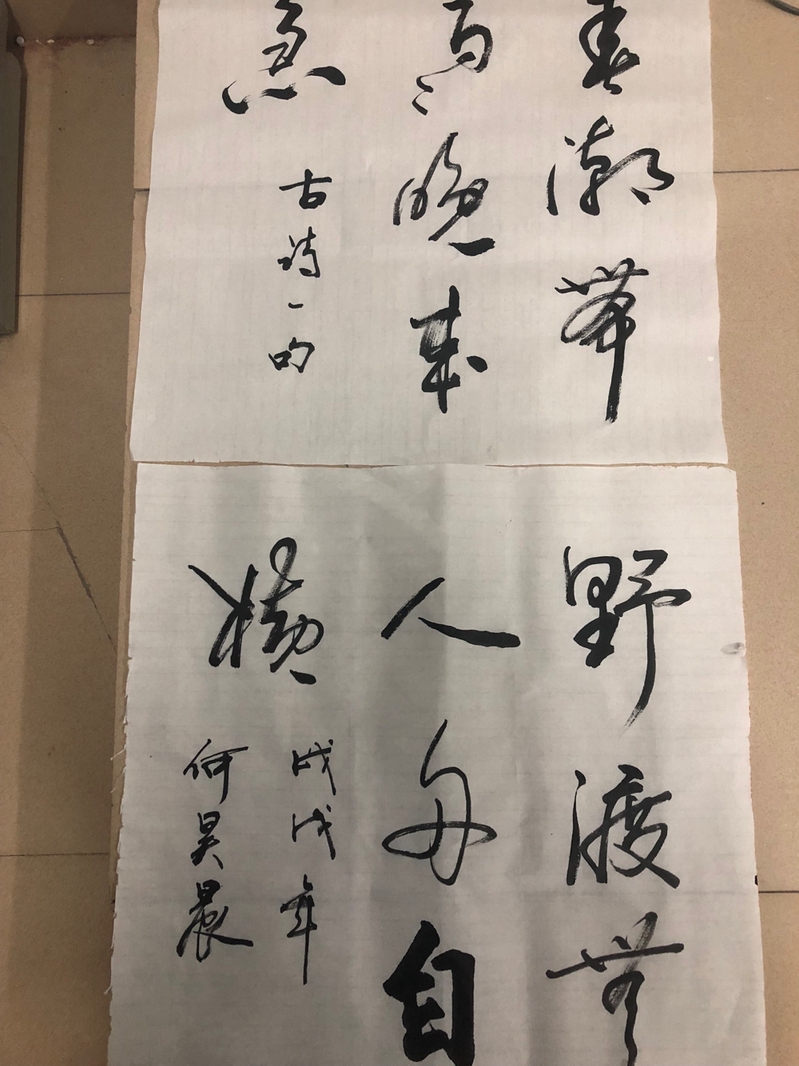 春潮带
雨晚来
急
古诗一句
野渡無
人舟自
横
戊戌年
何昊晨